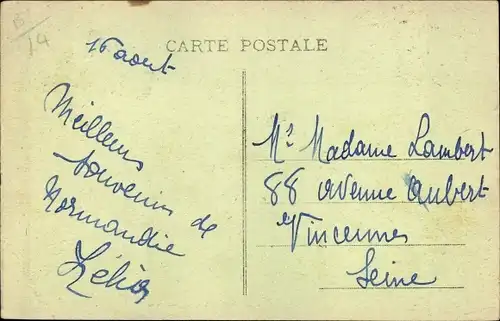 CARTE POSTALE
16 aout
Meilleurs
souvenirs de
Normandie
Mr Madame Lambert
88 avenue Aubert
Vincennes
Seine